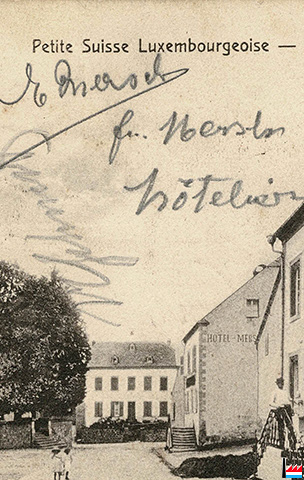 Petite Suisse Luxembourgeoise —
E Mersch
fr. Mersch
hôtelier
HOTEL MERS